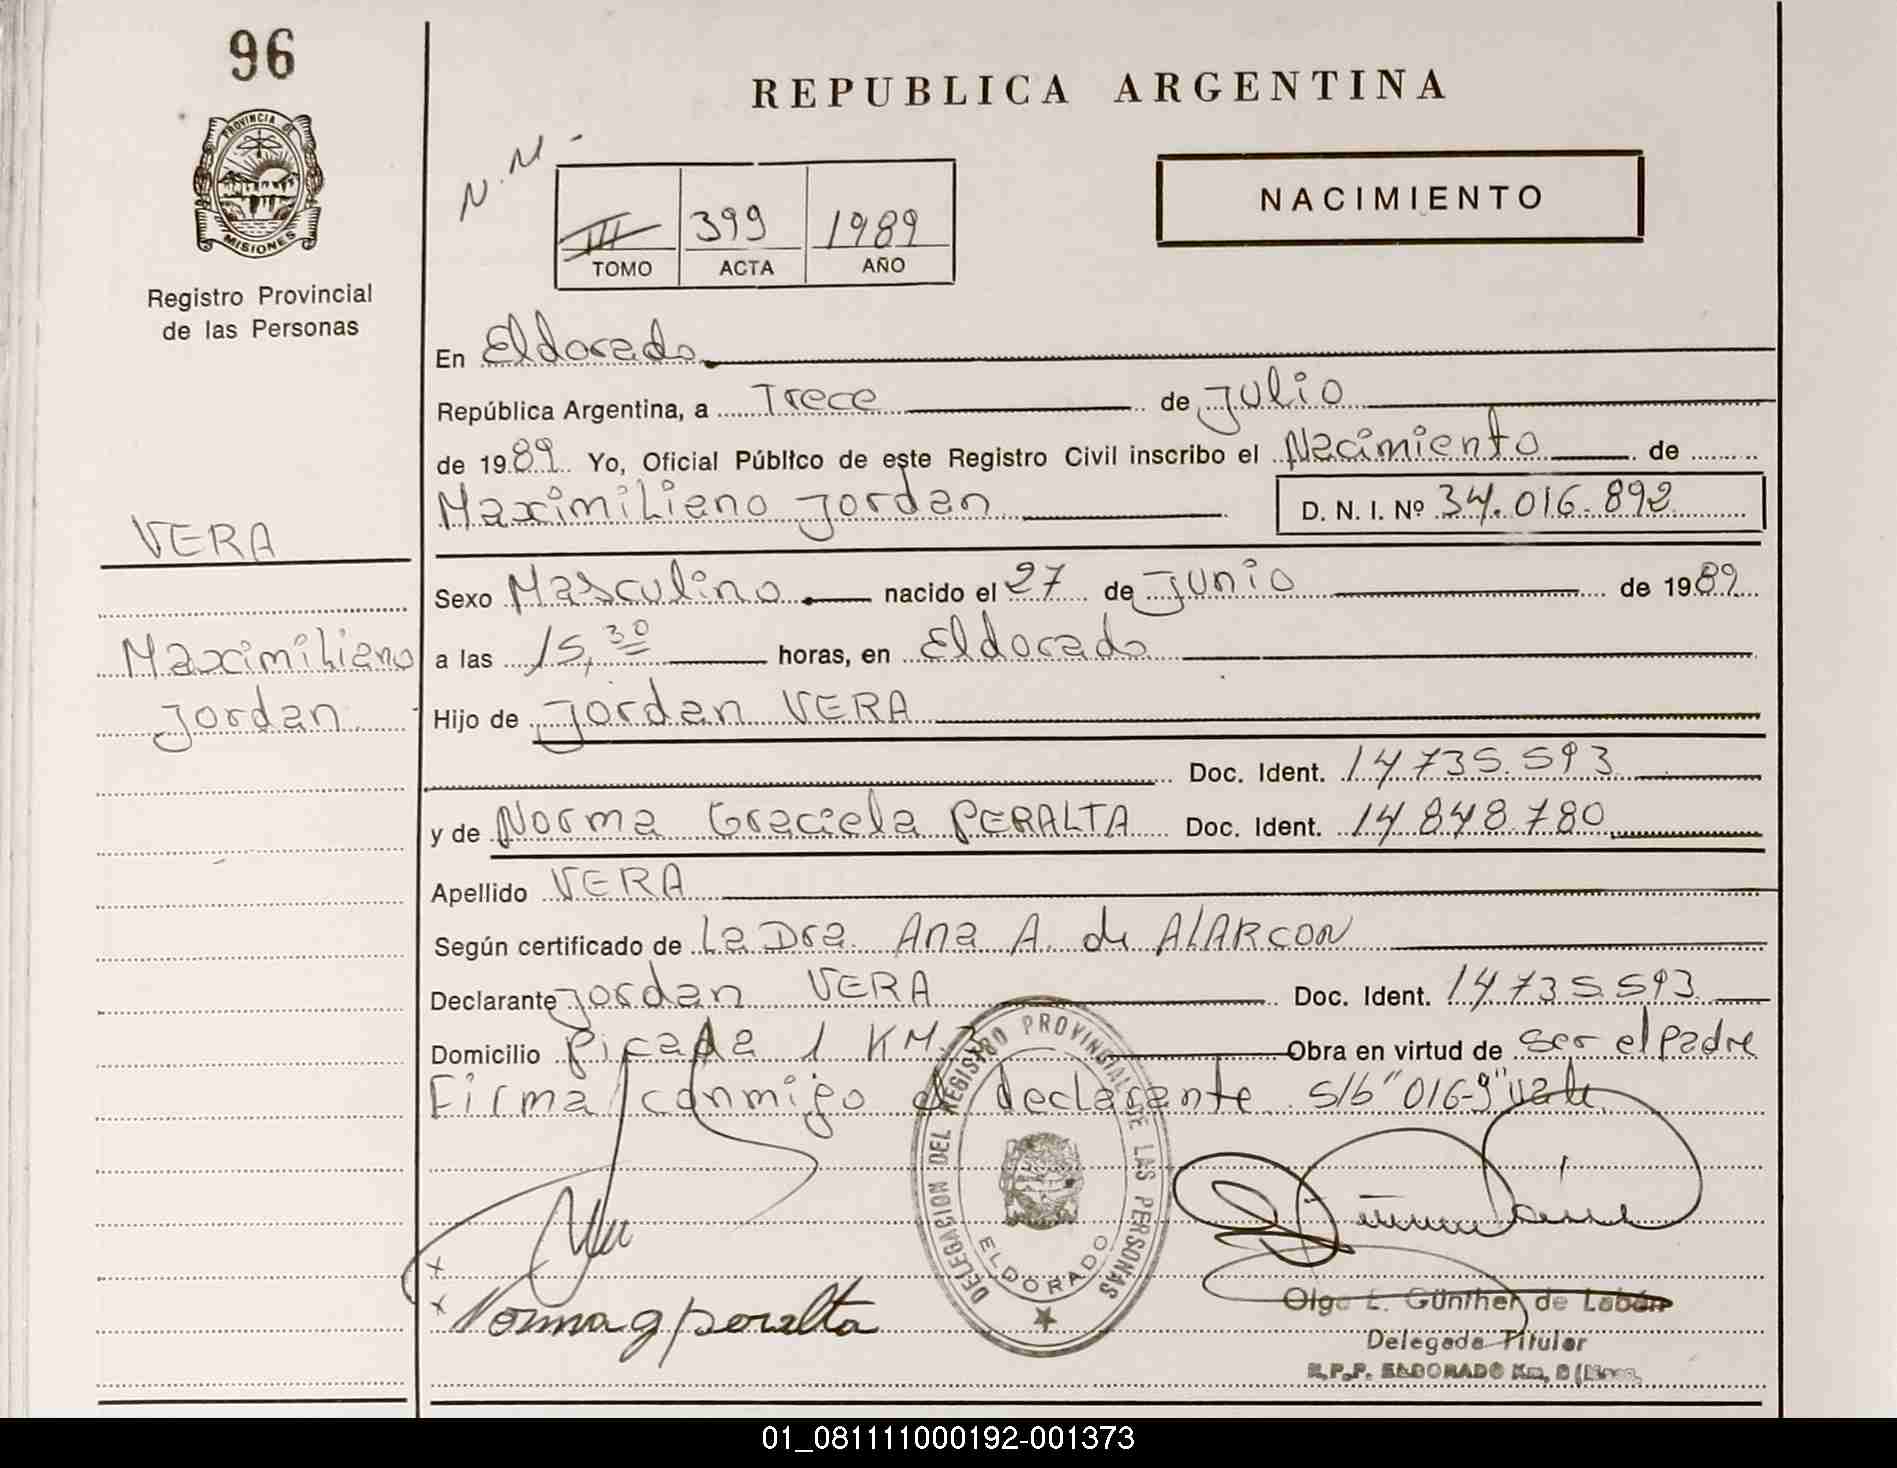 96
PROVINCIA DE
MISIONES
Registro Provincial
de las Personas
REPUBLICA ARGENTINA
N.N-
NACIMIENTO
III 399 1989
TOMO ACTA AÑO
En Eldorado
República Argentina, a Trece de Julio
de 1989 Yo, Oficial Público de este Registro Civil inscribo el Nacimiento de
Maximiliano Jordan D. N. I. Nº 34.016.892
VERA
Maximiliano
Jordan
Sexo Masculino nacido el 27 de Junio de 1989
a las 15,30 horas, en Eldorado
Hijo de Jordan VERA
Doc. Ident. 14.735.593
y de Norma Graciela PERALTA Doc. Ident. 14.848.780
Apellido VERA
Según certificado de La Dra. Ana A. de ALARCON
Declarante Jordan VERA Doc. Ident. 14.735.593
Domicilio Picada 1 KM. Obra en virtud de ser el padre
Firma conmigo el declarante. s/b "016-9" vale
DELEGACION DEL REGISTRO PROVINCIAL DE LAS PERSONAS
ELDORADO
x
x Norma g peralta
Olga E. Günther de Labán
Delegada Titular
R.P.P. ELDORADO Km, 9 (Mnes.
01_081111000192-001373